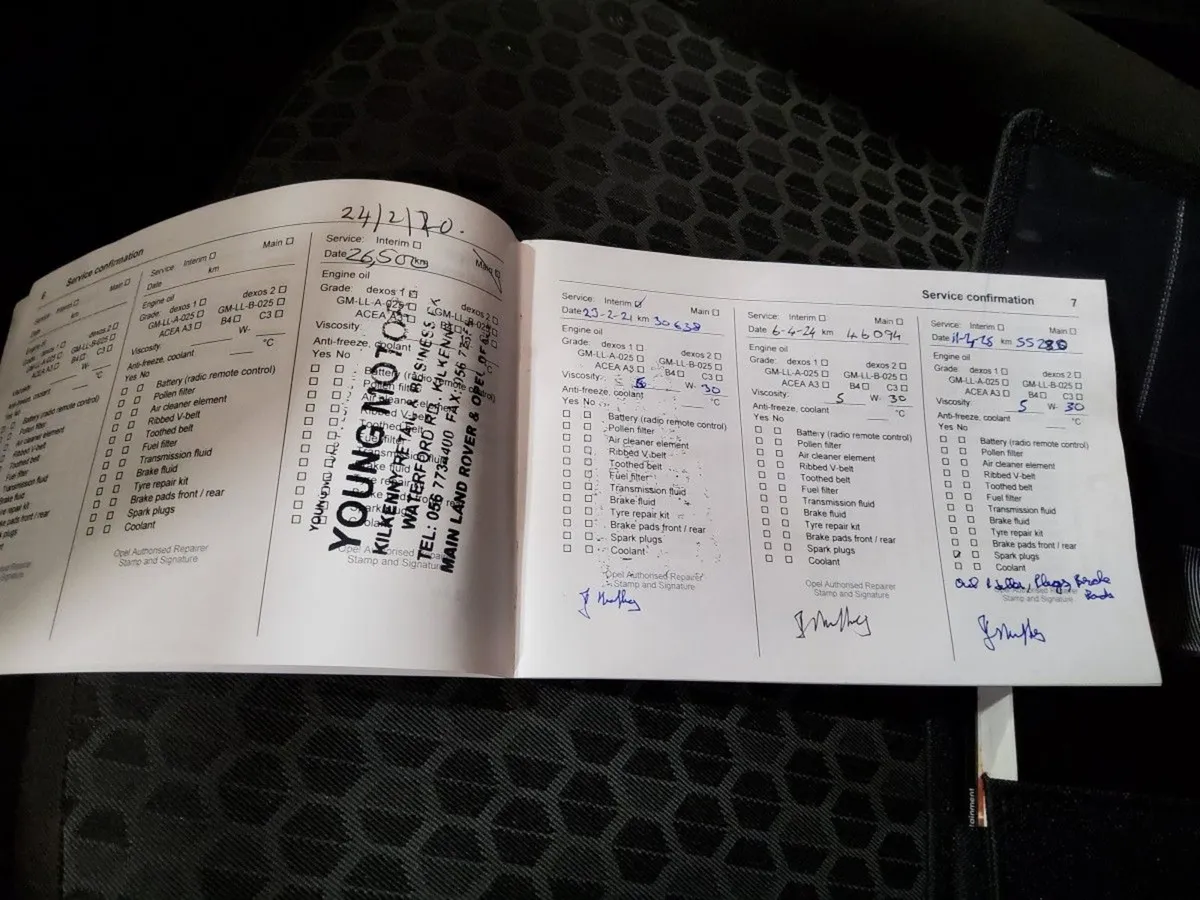 6 Service confirmation
Service: Interim ☐ Main ☐
Date km
Engine oil
Grade: dexos 1 ☐ dexos 2 ☐
GM-LL-A-025 ☐ GM-LL-B-025 ☐
ACEA A3 ☐ B4 ☐ C3 ☐
Viscosity: W-
Anti-freeze, coolant °C
Yes No
Battery (radio remote control)
Pollen filter
Air cleaner element
Ribbed V-belt
Toothed belt
Fuel filter
Transmission fluid
Brake fluid
Tyre repair kit
Brake pads front / rear
Spark plugs
Coolant
Opel Authorised Repairer
Stamp and Signature
Service: Interim ☐ Main ☐
Date km
Engine oil
Grade: dexos 1 ☐ dexos 2 ☐
GM-LL-A-025 ☐ GM-LL-B-025 ☐
ACEA A3 ☐ B4 ☐ C3 ☐
Viscosity: W-
Anti-freeze, coolant °C
Yes No
Battery (radio remote control)
Pollen filter
Air cleaner element
Ribbed V-belt
Toothed belt
Fuel filter
Transmission fluid
Brake fluid
Tyre repair kit
Brake pads front / rear
Spark plugs
Coolant
Opel Authorised Repairer
Stamp and Signature
24/2/20.
Service: Interim ☐ Main
Date 26,500 km
Engine oil
Grade: dexos 1 ☐ dexos 2 ☐
GM-LL-A-025 GM-LL-B-025
ACEA A3
Viscosity:
Anti-freeze, coolant
Yes No
Battery (radio remote control)
Pollen filter
Air cleaner element
Ribbed V-belt
Toothed belt
Fuel filter
Opel Authorised Repairer
Stamp and Signature
YOUNG MOTO
KILKENNY RETAIL & BUSINESS
WATERFORD RD. KILKENNY
TEL: 056 7734400 FAX: 056
MAIN LAND ROVER & OPEL DEALER
Service confirmation 7
Service: Interim ☑ Main ☐
Date 23-2-21 km 30638
Engine oil
Grade: dexos 1 ☐ dexos 2 ☐
GM-LL-A-025 ☐ GM-LL-B-025 ☐
ACEA A3 ☐ B4 ☐ C3 ☐
Viscosity: 5 W- 30
Anti-freeze, coolant °C
Yes No
Battery (radio remote control)
Pollen filter
Air cleaner element
Ribbed V-belt
Toothed belt
Fuel filter
Transmission fluid
Brake fluid
Tyre repair kit
Brake pads front / rear
Spark plugs
Coolant
Opel Authorised Repairer
Stamp and Signature
Service: Interim ☐ Main ☐
Date 6-4-24 km 46094
Engine oil
Grade: dexos 1 ☐ dexos 2 ☐
GM-LL-A-025 ☐ GM-LL-B-025 ☐
ACEA A3 ☐ B4 ☐ C3 ☐
Viscosity: 5 W- 30
Anti-freeze, coolant °C
Yes No
Battery (radio remote control)
Pollen filter
Air cleaner element
Ribbed V-belt
Toothed belt
Fuel filter
Transmission fluid
Brake fluid
Tyre repair kit
Brake pads front / rear
Spark plugs
Coolant
Opel Authorised Repairer
Stamp and Signature
Service: Interim ☐ Main ☐
Date km
Engine oil
Grade: dexos 1 ☐ dexos 2 ☐
GM-LL-A-025 ☐ GM-LL-B-025 ☐
ACEA A3 ☐ B4 ☐ C3 ☐
Viscosity: 5 W- 30
Anti-freeze, coolant °C
Yes No
Battery (radio remote control)
Pollen filter
Air cleaner element
Ribbed V-belt
Toothed belt
Fuel filter
Transmission fluid
Brake fluid
Tyre repair kit
Brake pads front / rear
Spark plugs
Coolant
Plugs, Brake
Pads
Opel Authorised Repairer
Stamp and Signature
tainment